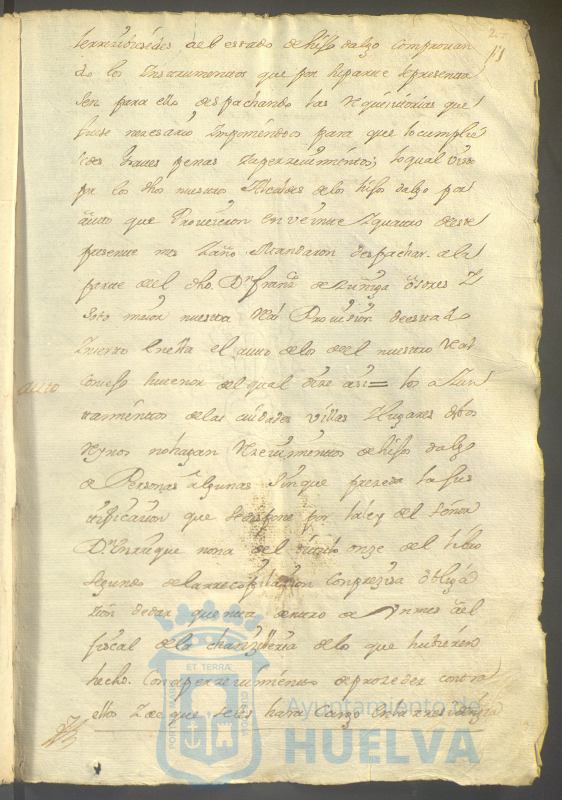 2
11
del estado de hijo dalgo comprovan
do los Instrumentos que por su parte se presenta
sen para ello despachando las requisitorias que
fuese necesario Imponiendoos para que lo cumplie
graves penas Y apercevimientos; lo qual visto
por los dhos nuestros Alcaldes de los hijos dalgo por
auto que Proveieron en veinte Y quatro deste
presente mes Y año Mandaron despachar a la
parte del dho Dn franco de Zuniga
Soto maior nuestra Real Provision
Inserto en ella el auto de los del nuestro Real
auto
Consejo del qual dize asi = los a Yun
tamientos de las ciudades villas Y lugares destos
Reynos no hagan Recivimientos de hijos dalgo
a Personas algunas sin que preceda la Jus
tificacion que se dispone por la ley del señor
Dn Enrrique nona del titulo onze del libro
segundo de la rrecopilazion con preziza obliga
zion de dar quenta dentro de Un mes al
fiscal de la chanzilleria de lo que hubieren
hecho. Con apercevimiento de proceder contra
ellos Y de que se les hara Cargo en la rresidenzia
PORTUS MARIS
ET TERRÆ
CUSTODIA
Ayuntamiento de
HUELVA